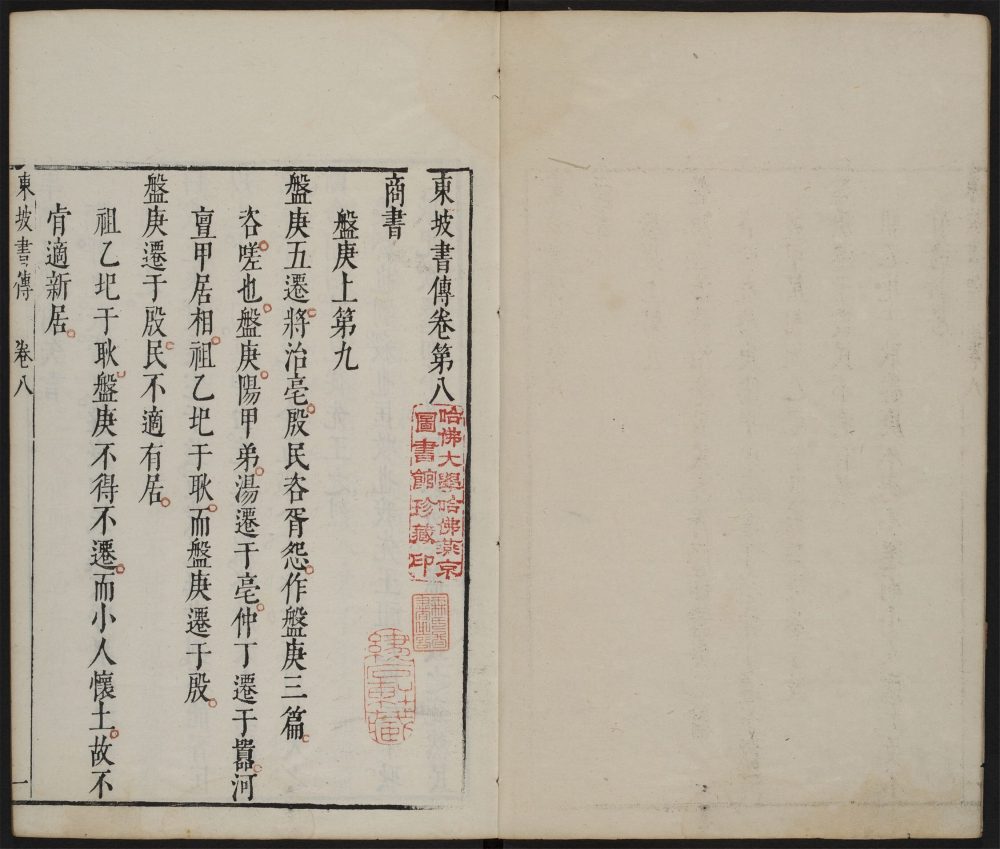 東坡書傳卷第八
哈佛大學哈佛燕京
圖書館珍藏印
商書
盤庚上第九
盤庚五遷將治亳殷民咨胥怨作盤庚三篇
咨嗟也盤庚陽甲弟湯遷于亳仲丁遷于囂河
亶甲居相祖乙圯于耿而盤庚遷于殷
盤庚遷于殷民不適有居
祖乙圯于耿盤庚不得不遷而小人懷土故不
肯適新居
東坡書傳 卷八 一